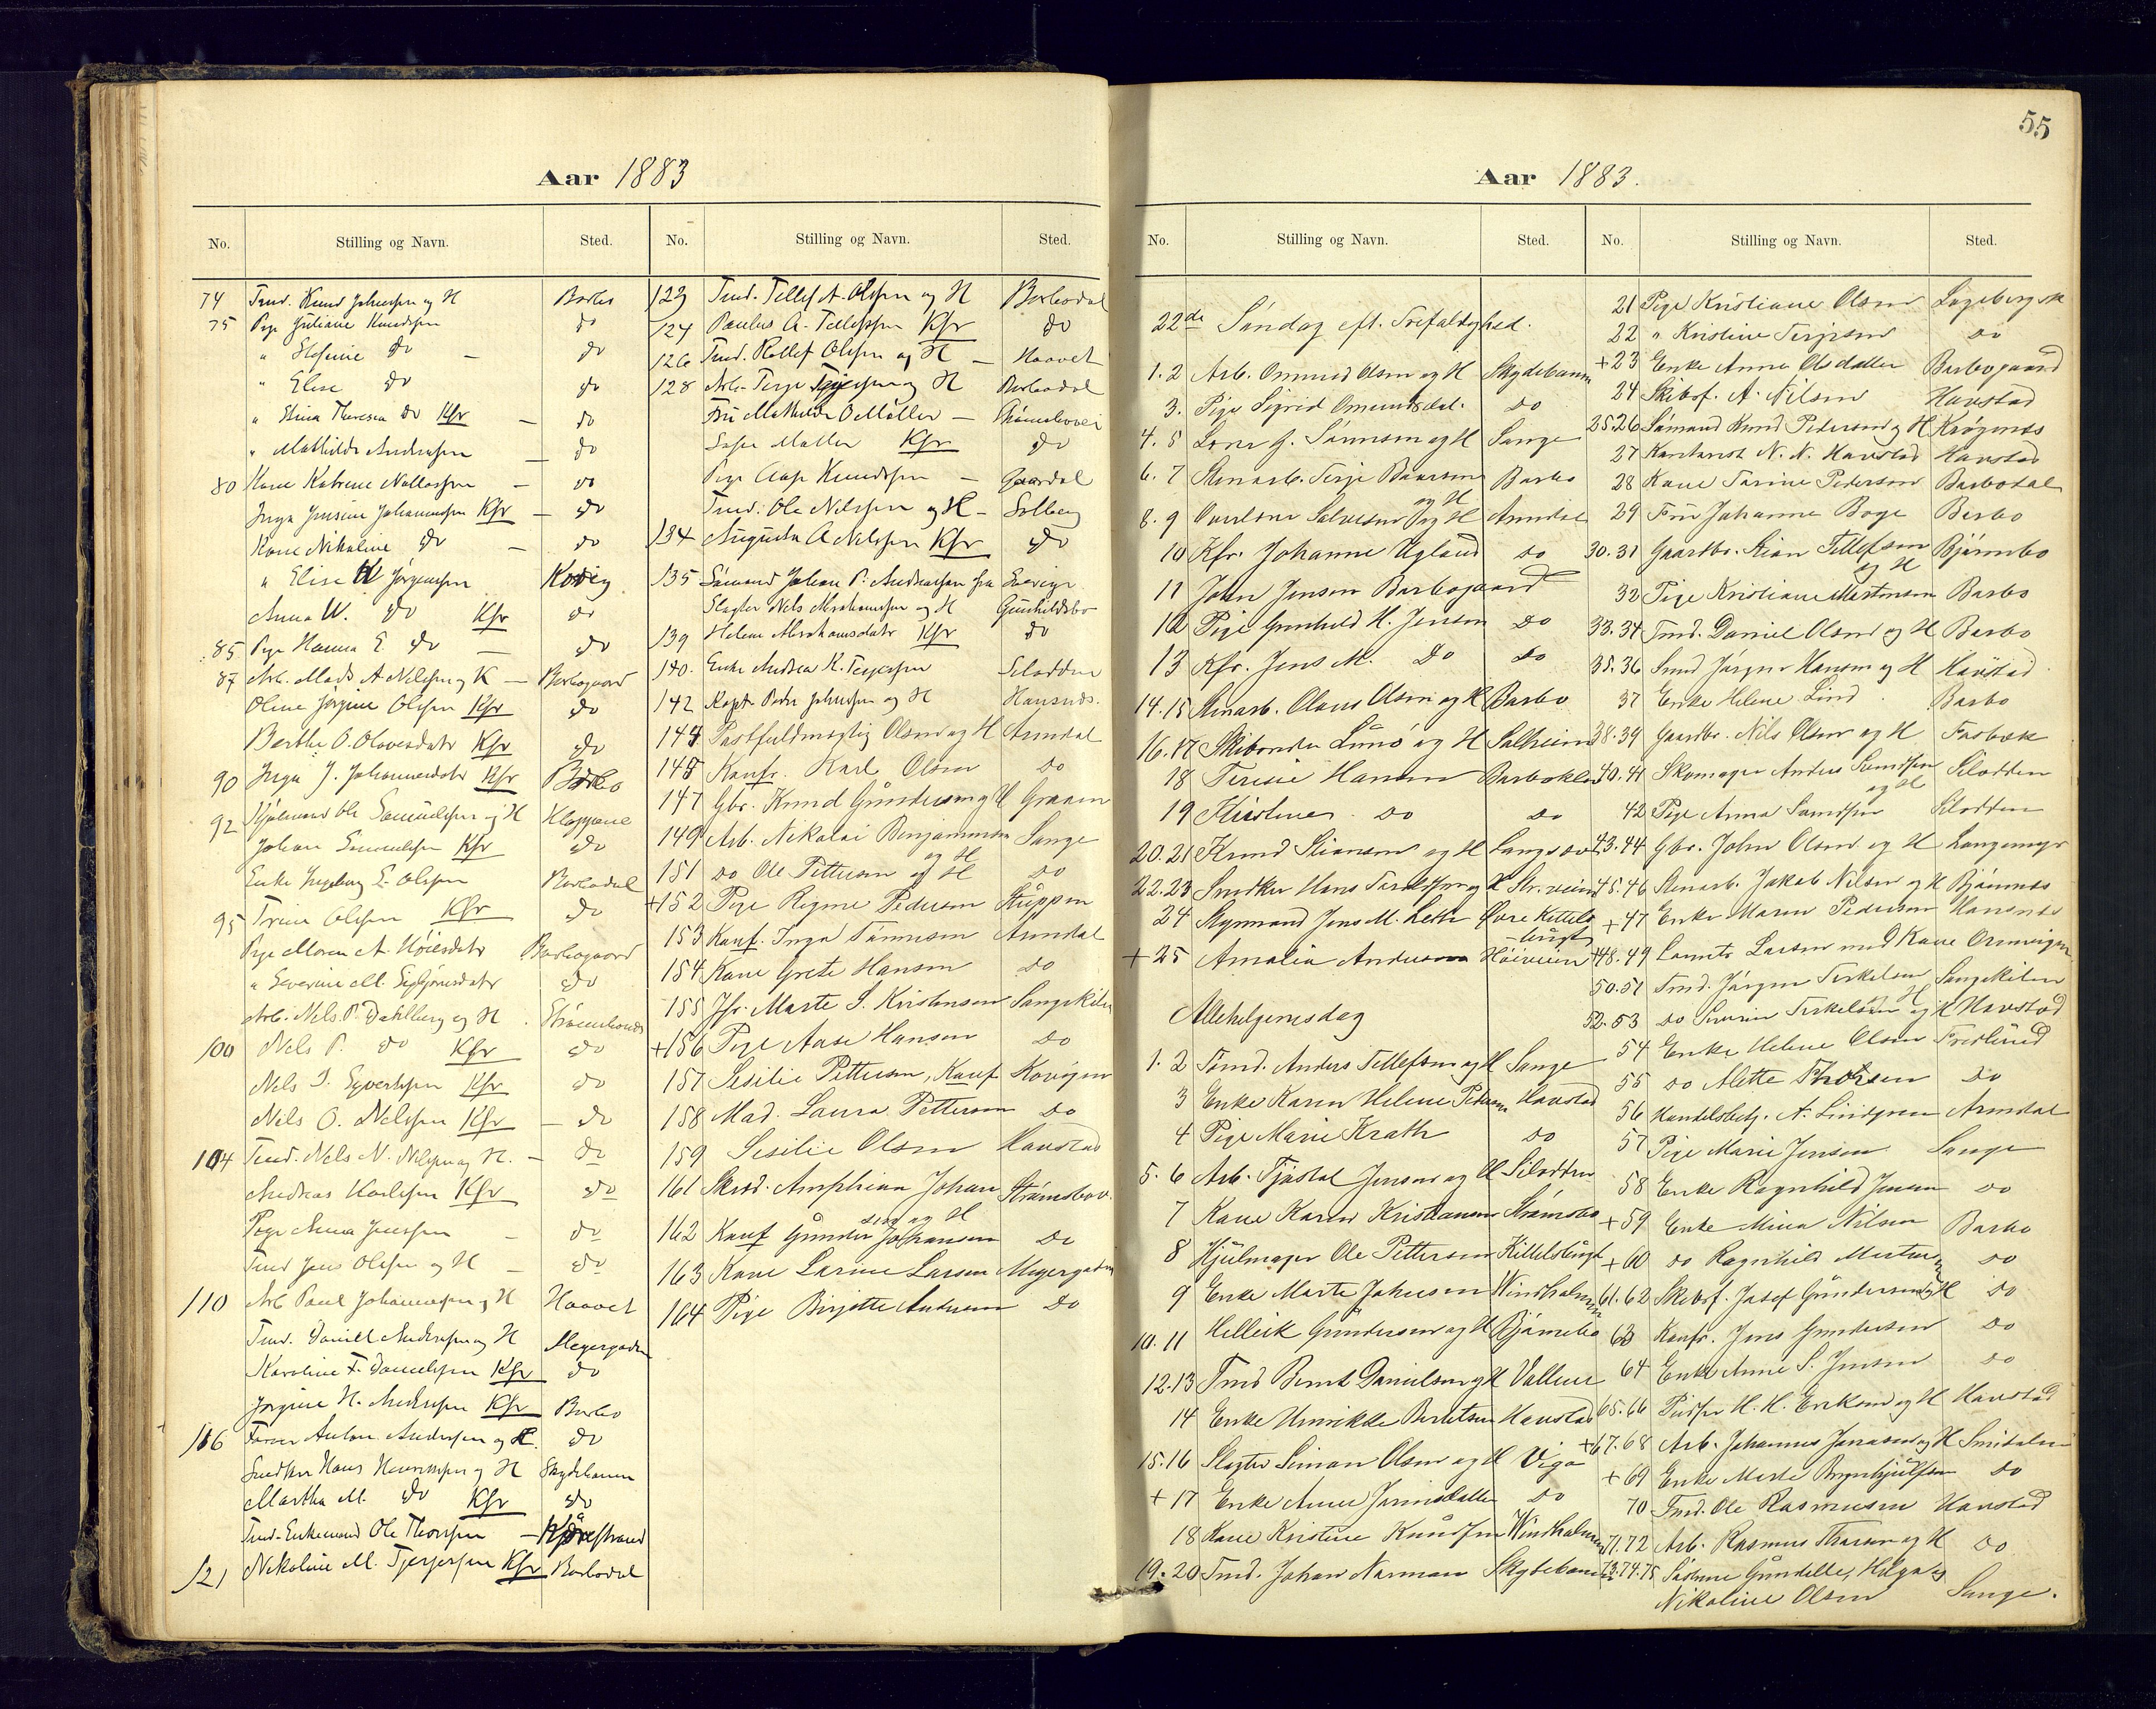 Aar 1883
No. Stilling og Navn. Sted.
74 Tmd. Knud Johnsen og H Barbo
75 Pige Juliane Knudsen do
" Stefanie do — do
" Elise do do
" Stina Theresia do Kfr — do
" Mathilde Andersen — do
80 Kone Katrine — do
Inga Jensine Johannessen Kfr — do
Kone Nikoline do — do
" Elise Jørgensen Kovig
Anna W. do Kfr do
85 Pige Hanna E. do — do
87 Arb. Mads A Nilsen og H — Barbogaard
Oline Jørgine Olsen Kfr do
Berthe O. Olsvesdatr Kfr do
90 Inga J. Johannesdatr Kfr Barbo
92 Ole Samuelsen og H Kloppene
Johan Samuelsen Kfr do
Enke Ingeborg E. Olsen Barbodal
95 Trine Olsen Kfr do
Pige Maren A. Barbogaard
" Severine M. do
Arb. Nels P. Dahlberg og H
100 Nels P. do Kfr do
Nels S. Syvertsen Kfr do
Nels O. Nelsen Kfr — do
104 Tmd. Nels N. Nilsen og H. — do
Andreas Karlsen Kfr do
Pige Anna Jensen — do
Tmd Jens Olsen og H — do
110 Arb Paul Johannesen og H Haavet
Tmd. Daniel Andersen og H Meyergaden
Karoline F. Danielsen Kfr do
Jørgine H. Andersen Kfr Barbo
116 Anton Andersen og H. do
Snedker Hans og H Skydebanen
Martha M. do Kfr do
Tmd. Enkemand Ole Thorsen —
121 Nikoline M. Terjesen Kfr Barbodal
No. Stilling og Navn. Sted.
123 Tmd. Tellef A. Olsen og H Barbodal
124 Paulus A. Tellefsen Kfr do
126 Tmd. Rollef Olsen og H — Haavet
128 Arb. Terje Terjesen og H Barbodal
Fru Mathilde O Møller —
Sofie Møller Kfr do
Pige Aase Knudsen — Gaardal
Tmd. Ole Nilsen og H — Solberg
134 Augusta A Nilsen Kfr do
135 Sømand Johan P. Andreasen fra Sverige
Slagter Nels Abrahamsen og H Gunhildsbo
139 Helene Abrahamsdatr Kfr do
140. Enke Andrea K. Terjesen Selodden
142 Kapt Peder Johnsen og H Hansnæs.
144 Postfuldmægtig Olsen og H Arendal
145 Konfr. Karl Olsen do
147 Gbr. Knud Gundersen og H Graaen
149 Arb. Nikolai Benjaminsen og H Sange
151 do Ole Pettersen og H do
+152 Pige Regine Pedersen Stuppen
153 Konf. Inga Tønnesen Arendal
154 Kone Grete Hansen do
155 Jfr. Marte S. Kristensen Songekilen
+156 Pige Aase Hansen do
157 Sesilie Pettersen, Konf Kovigen
158 Mad. Laura Pettersen do
159 Sesilie Olsen Havstad
161 Skrd. Amphion Johansen og H Strømsbov.
162 Konf Gunder Johansen do
163 Kone Larine Larsen Meyergaden
164 Pige Birgitte Andersen do
55
Aar 1883.
No. Stilling og Navn. Sted.
22de Søndag eft. Trefaldighed.
1. 2 Arb. Ommund Olsen og H Skydebanen
3. Pige Sigrid Omundsdat. do
4. 5 G. Tønnesen og H Sange
6. 7 Stenarb. Terje Baarsen og H Barbo
8. 9 Salvesen og H Arendal
10 Kfr. Johanne Ugland do
11 John Jensen Barbogaard
12 Pige Gunhild H. Jensen do
13 Kfr. Jens M. do do
14. 15 Stenarb. Olaus Olsen og H Barbo
16. 17 Skibsreder Lunø og H Solheim
18 Teresie Hansen
19 Kristine do do
20. 21 Knud Stiansen og H Langsæv
22. 23 Snedker Hans og H Str. veien
24 Styrmand Jens M. Leth Øvre Kittelsbugt
+ 25 Amalia Andersen Høiveien
Allehelgensdag
1. 2 Tømd. Anders Tellefsen og H Sange
3 Enke Karen Helene Pedersen Havstad
4 Pige Marie Krath do
5. 6 Arb. Tjøstol Jensen og H Selodden
7 Kone Karen Kristiansen Strømsbo
8 Hjulmager Ole Pettersen Kittelsbugt
9 Enke Marte Johnsen Windholmen
10. 11 Helleik Gundersen og H Bjørnebo
12. 13 Tmd Bernt Danielsen og H Vollene
14 Enke Henrikke Berntsen Havstad
15. 16 Slagter Simon Olsen og H Viga
+ 17 Enke Anne do
18 Kone Kristine Knudsen Windholmen
19. 20 Tmd. Johan Narman Skydebanen
No. Stilling og Navn. Sted.
21 Pige Kristiane Olsen
22 " Kristine Terjesen do
+23 Enke Anne Olsdatter Barbogaard
24 Skibsf. A. Nilsen Havstad
25.26 Sømand Knud Pedersen og H Krøgenes
27 N. N. Havstad Havstad
28 Kone Tarine Pedersen Barbodal
29 Fru Johanne Boye Barbo
30. 31 Gaardbr. Stian Tellefsen og H Bjørnebo
32 Pige Kristiane Mortensen Barbo
33. 34 Tmd. Daniel Olsen og H Barbo
35. 36 Smed Jørgen Hansen og H Havstad
37 Enke Helene Lind Barbo
38. 39 Gaardbr. Nils Olsen og H Færbæk
40. 41 Skomager Anders og H Selodden
42 Pige Anna Selodden
43. 44 Gbr. John Olsen og H Langemyr
45. 46 Stenarb. Jakob Nilsen og H Bjørnnes
+ 47 Enke Maren Pedersen Hansnes
48. 49 Larsen med Kone
50. 51 Tmd. Jørgen Terkelsen H Songekilen
52. 53 do Severin Terkelsen og H Havstad
54 Enke Helene Olsen Fredlund
55 do Alette Thorsen do
56 Handelsbetj. A. Lindgren Arendal
57 Pige Marie Jensen Sange
58 Enke Ragnhild Jensen do
+ 59 Enke Mina Nilsen Barbo
+ 60 do Ragnhild Mortensen do
61. 62 Skibsf. Josef Gundersen og H do
63 Konfr. Jens Gundersen do
64 Enke Anne S. Jensen do
65. 66 H. H. Eriksen og H Havstad
+67. 68 Arb. Johannes Jonassen og H
+ 69 Enke Marte Brynhjulfsen do
70 Tmd. Ole Rasmussen Havstad
71. 72 Arb. Rasmus Thorsen og H do
73. 74. 75 Søstrene Gundelle, Helga og
Nikoline Olsen Sange.